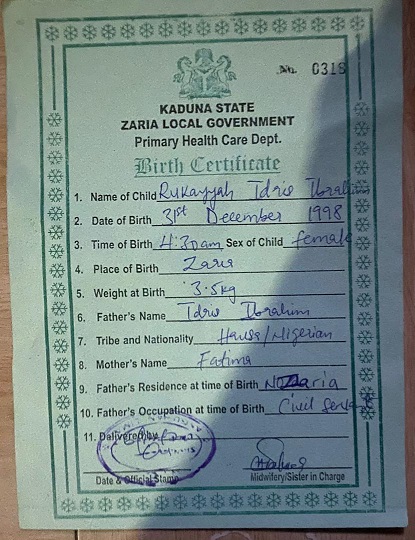 No. 0318
KADUNA STATE
ZARIA LOCAL GOVERNMENT
Primary Health Care Dept.
Birth Certificate
1. Name of Child Rukayyah Idris Ibrahim
2. Date of Birth 31st December 1998
3. Time of Birth 4:30am Sex of Child female
4. Place of Birth Zaria
5. Weight at Birth 3.5kg
6. Father's Name Idris Ibrahim
7. Tribe and Nationality Hausa/Nigerian
8. Mother's Name Fatima
9. Father's Residence at time of Birth Zaria
10. Father's Occupation at time of Birth Civil
11. Delivered by
Date & Official Stamp Midwifery/Sister in Charge